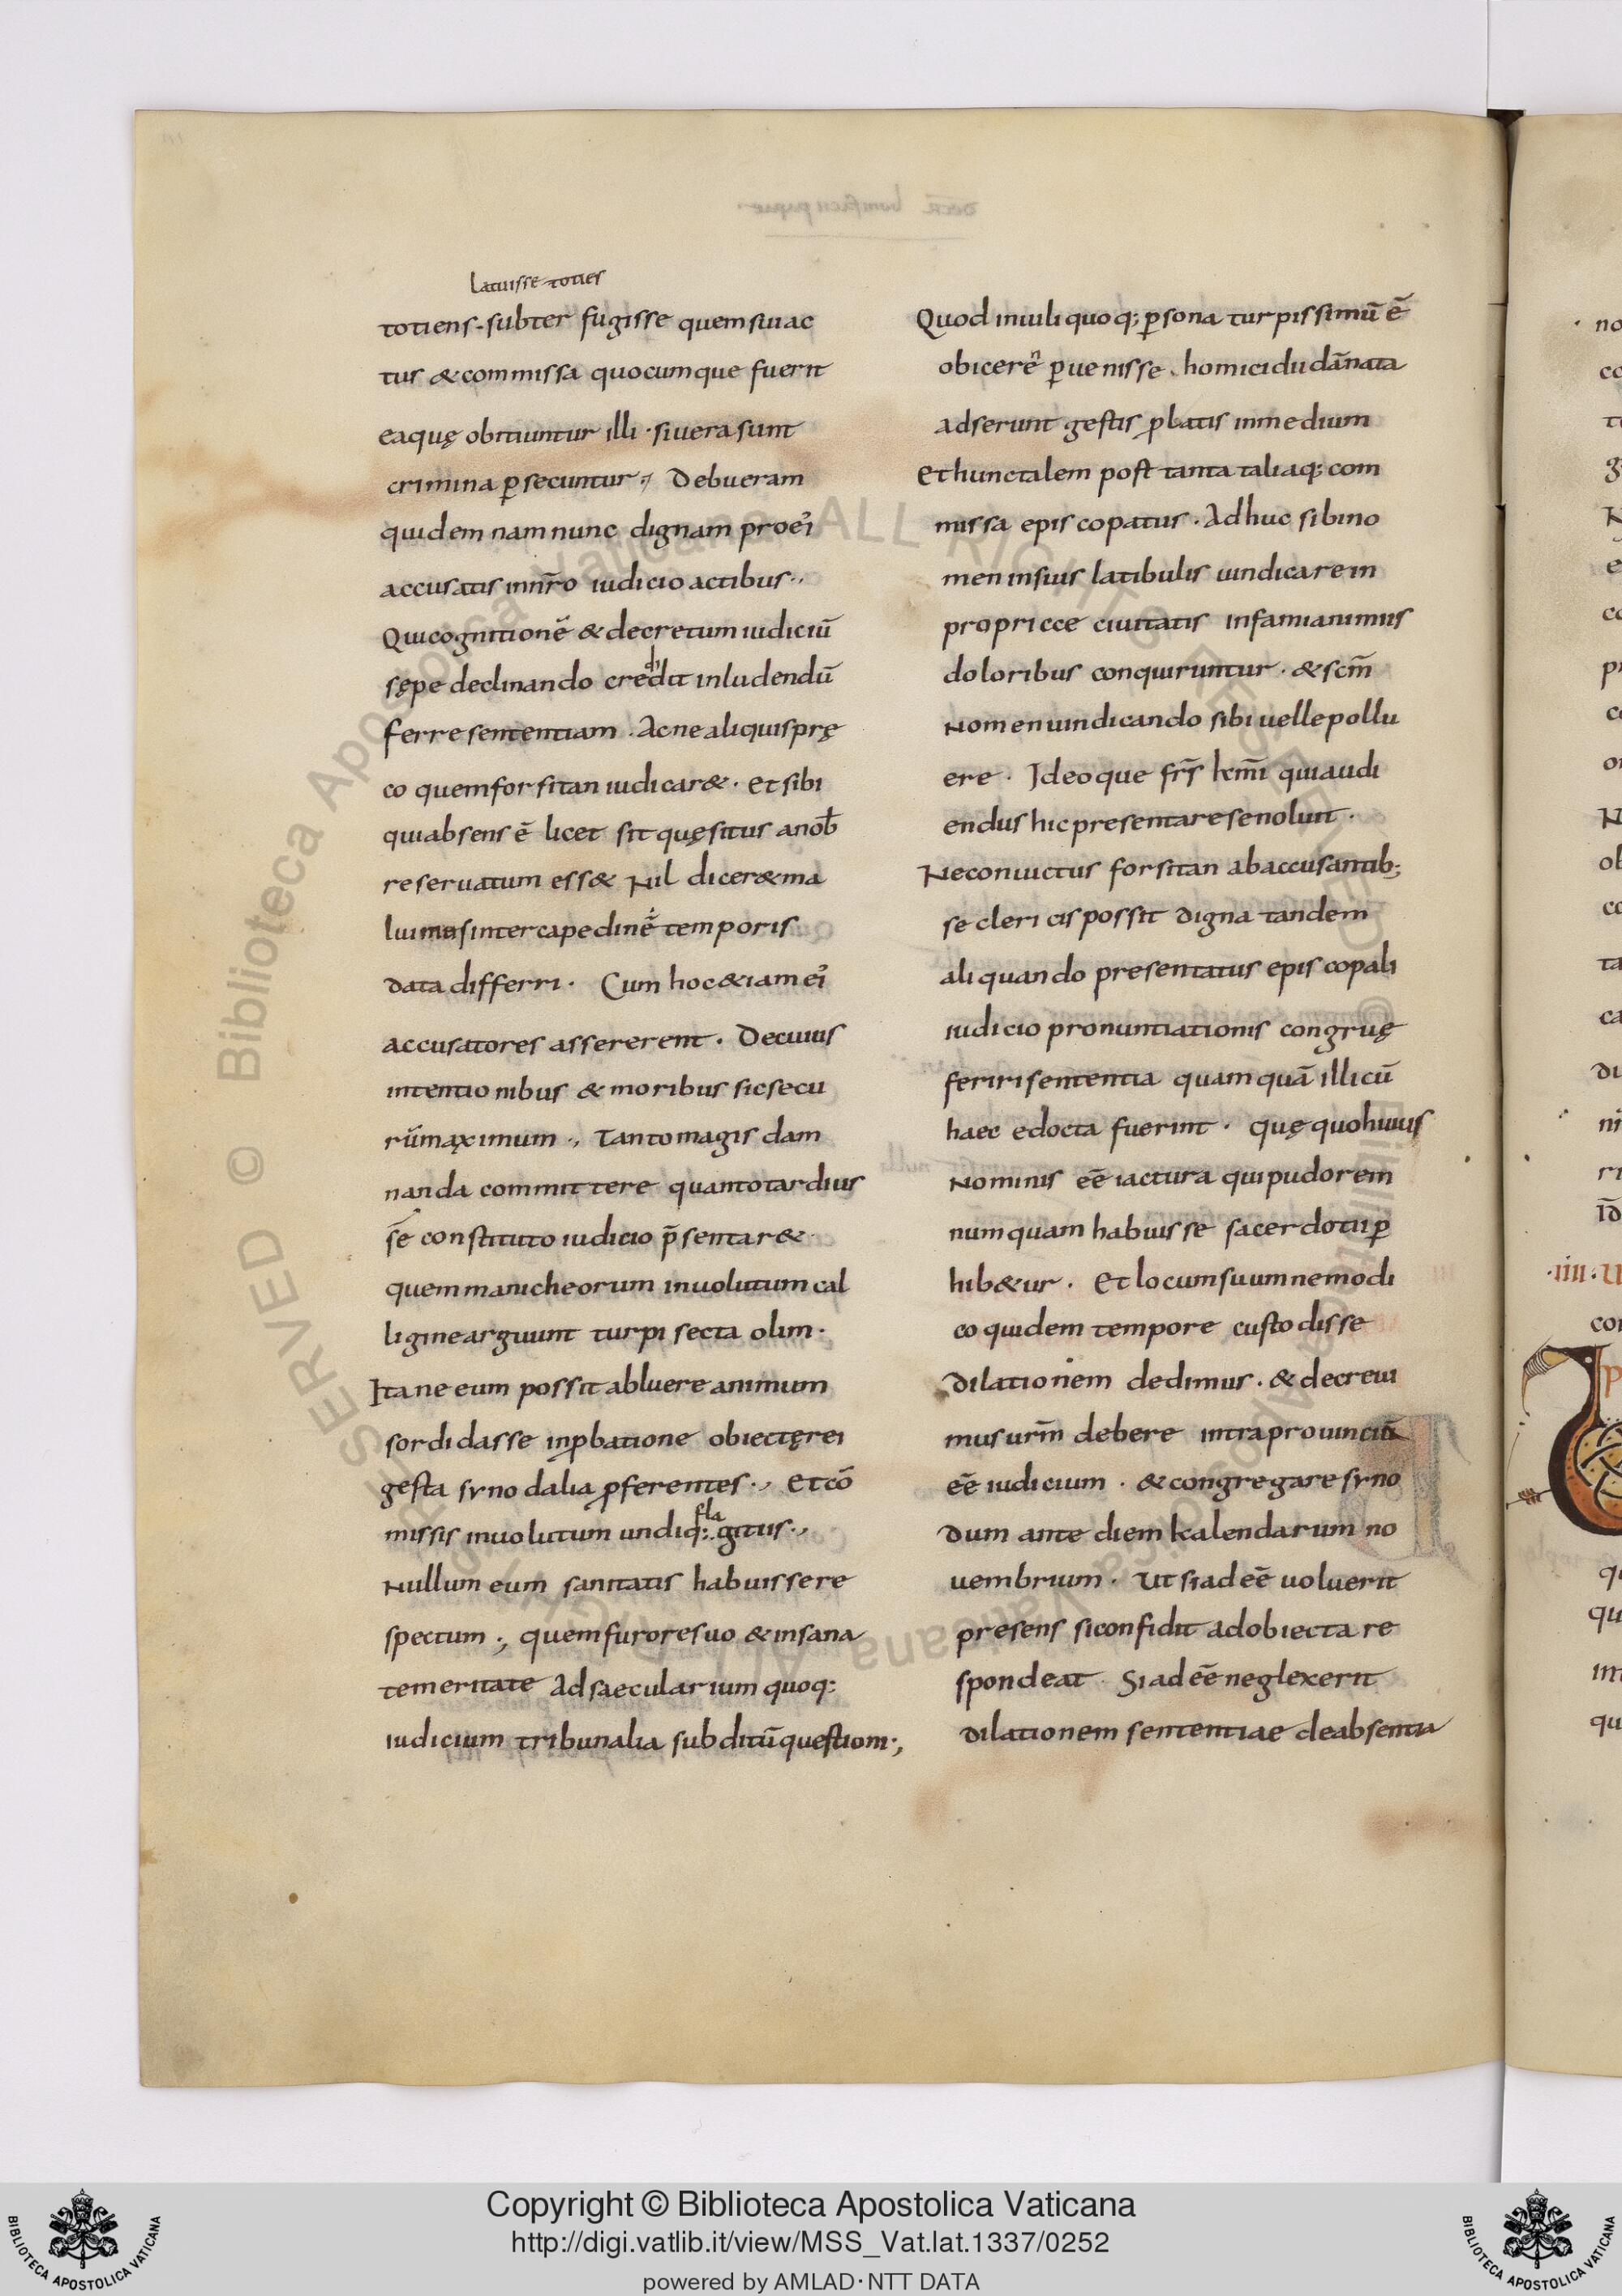 latuisse toties
totiens. subter fugisse quem sui ac
tus & commissa quocumque fuerit
eaquę obtiuntur illi · si uera sunt
crimina ꝑsecuntur ·, Debueram
quidem nam nunc dignam pro ei᾽
accusatis in nr̄o iudicio actibus ·,
Qui cognitionē & decretum iudiciū
di
sępe declinando credit inludendū
ferre sententiam . Ac ne aliquis prę
co quem forsitan iudicar& · Et sibi
qui absens ē licet sit quęsitus a nob̄
reseruatum ess& Nil dicer& ma
luimus intercapedinē temporis
data differri · Cum hoc &iam ei᾽
accusatores assererent . De cuius
intentionibus & moribus sic secu
rūmaximum ·, Tanto magis dam
nanda committere quanto tardius
sē constituto iudicio p̄sentar& ·
quem manicheorum inuolutum cal
ligine arguunt turpi secta olim ·
Itane eum possit abluere animum
sordidasse in ꝓbatione obiectęrei
gesta synodalia ꝓferentes ·, Et cō
fla
missis inuolutum undiq;: gitus ·,
Nullum eum sanitatis habuisse re
spectum ·, quem furore suo & insana
temeritate Ad saecularium quoq:
iudicium tribunalia subditū questioni ·,
Quod inuili quoq; ꝑsona turpissimū ē
n
obicerē ꝑuenisse . homicidii dānata
adserunt gestis ꝓlatis in medium
Et hunc talem post tanta taliaq; com
missa episcopatus . Adhuc sibi no
men in suis latibulis uindicare in
propricce ciuitatis infamianimiis
doloribus conquiruntur · & scm̄
Nomen uindicando sibi uelle pollu
ere · Ideoque frs̄ km̄i qui audi
endus hic presentare se noluit ·
Ne conuictus forsitan ab accusantib;
se clericis possit digna tandem
aliquando presentatus episcopali
iudicio pronuntiationis congruę
feriri sententia quam quā illi cū
haec edocta fuerint · quę quo huius
Nominis eē iactura qui pudorem
numquam habuisse sacerdotii ꝑ
hib&ur · Et locum suum ne modi
co quidem tempore custodisse
dilationem dedimus . & decreui
mus urm̄ debere intra prouinciā
eē iudicium · & congregare syno
dum ante diem kalendarum no
uembrium · Ut si ad eē uoluerit
presens si confidit ad obiecta re
spondeat · Si ad eē neglexerit
dilationem sententiae de absentia
Copyright © Biblioteca Apostolica Vaticana
http://digi.vatlib.it/view/MSS_Vat.lat.1337/0252
powered by AMLAD·NTT DATA
BIBLIOTECA APOSTOLICA VATICANA
BIBLIOTECA APOSTOLICA VATICANA